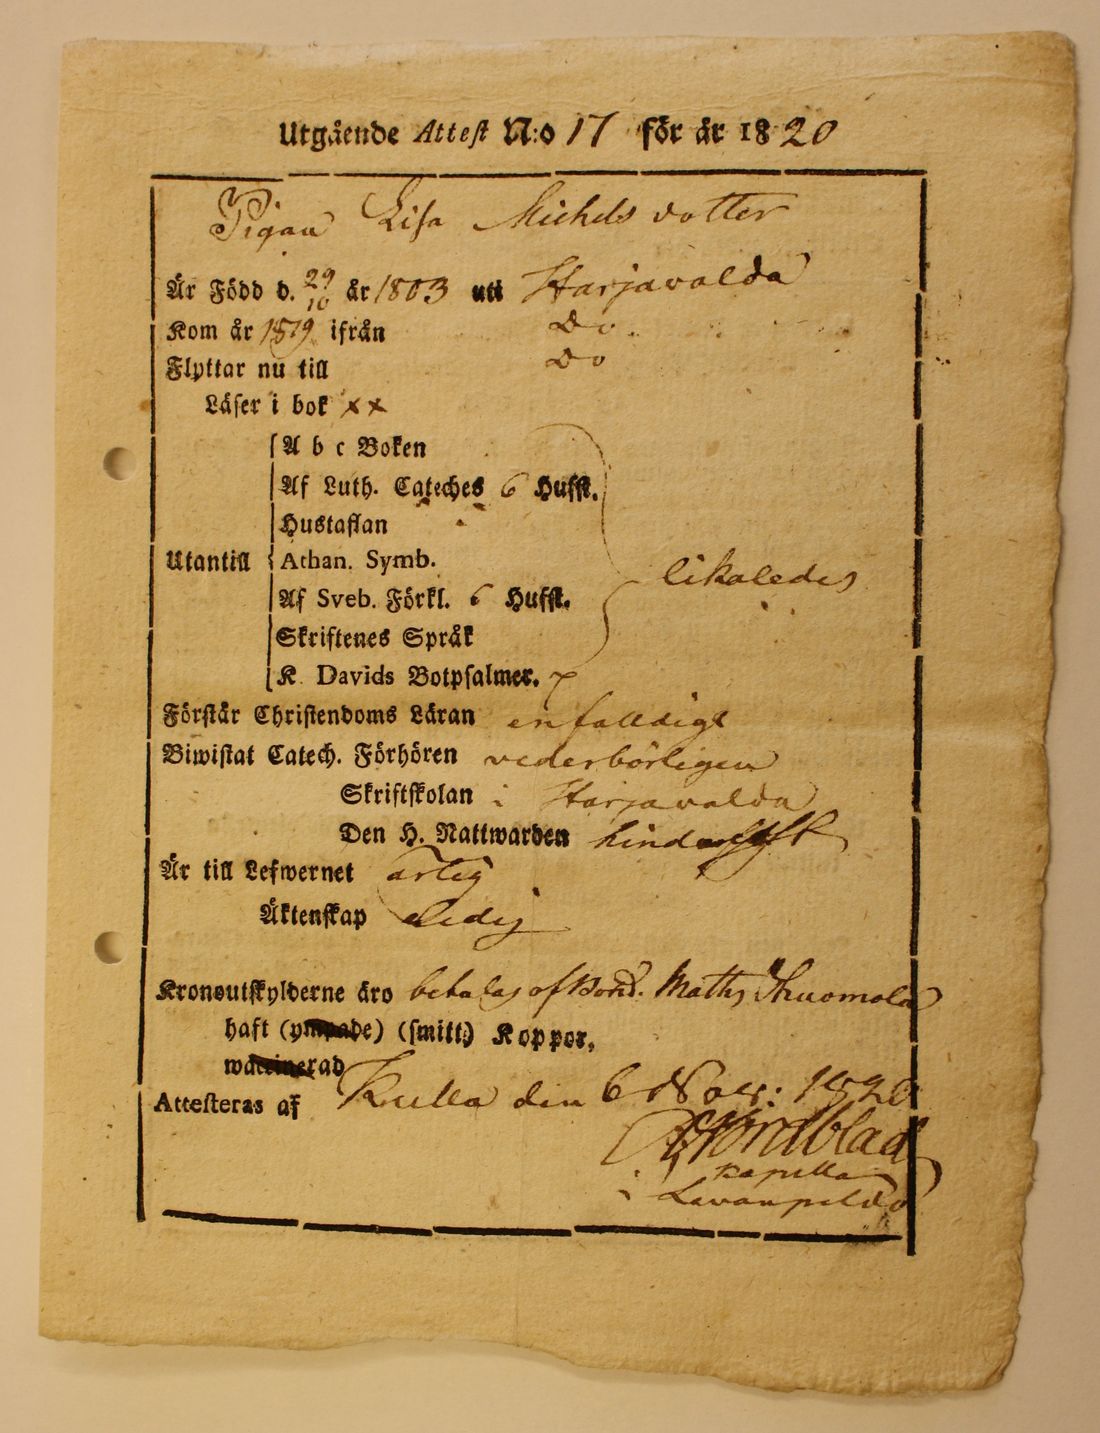 Utgående Attest N:o 17 för år 1820
Pigan Lisa Michels dotter
Är Född d. 29/10 år 1803 uti Harjavalda
Kom år 1819 ifrån Do
Flyttar nu till Do
Läser i bok x x
A b c Boken
Af Luth. Cateches 6 Hufst.
Hustaflan
Utantill Athan. Symb. likaledes
Af Sveb. Förkl. 6 Hufst.
Skriftenes Språk
K. Davids Botpsalmer. 7
Förstår Christendoms Läran enfalldigt
Biwistat Catech. Förhören vederbörligen
Skriftskolan i Harjavalda
Den H. Nattwarden
Är till Lefwernet ärlig
Äktenskap ledig
Kronoutskylderne äro betalas af Bond. Maths
haft (ympade) (smitt:) Koppor,
waccinerad
Attesteras af Kulla den 6 Nov: 1820
Nordblad
Kapella
i